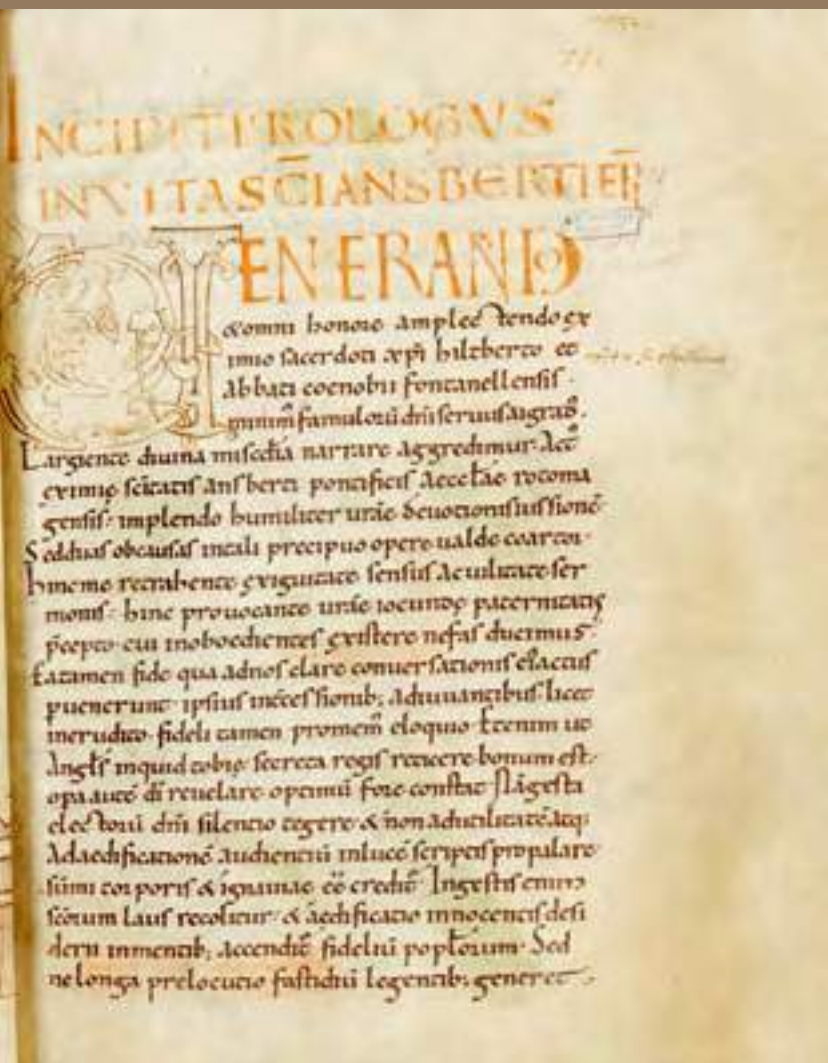 INCIPIT PROLOGVS
IN VITA SC̄I ANSBERTI EP̄I
VENERANDO
&omni honore amplectendo ex
imio sacerdoti xp̄i hiltberto &
Abbati coenobii fontanellensis.
minim̄ famuloꝝū dn̄i seruus aigrad᷒.
Largiente diuina miſcdīa narrare aggredimur. Act᷒
eximię sc̄itatis ansberti pontificis aeccl̄ae rotoma
gensis. implendo humiliter ur̄ae deuotionis iussionē.
Sed duas ob causas in tali precipuo opere ualde coartor.
hinc me retrahente exiguitate sensus ac uilitate ser
monis. hinc prouocante ur̄ae iocundę paternitatis
p̄cepto. cui inoboedientes existere nefas ducimus.
Ea tamen fide qua ad nos clare conuersationis ei᷒ actus
puenerunt. ipsius int̄cessionib; adiuuantibus. licet
inerudito. fideli tamen promem̄ eloquio. Etenim ut
Angl̄s inquid tobię. secreta regis reticere bonum est.
opa autē di reuelare optimū fore constat
electorū dn̄i silentio tegere & non ad utilitatē atq;
Ad aedificationē audientiū in lucē scriptis propalare
sūmi torporis & ignauiae eē credit᷒. In gestis enim
sc̄orum laus recolitur. & aedificatio innocentis desi
derii in mentib; accendit᷒ fideliū popl̄orum. Sed
ne longa prelocutio fastidiū legentib; generet.